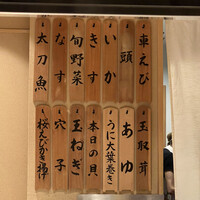 車えび
頭
いか
きす
旬野菜
なす
太刀魚
玉取茸
あゆ
うに大葉巻き
本日の貝
玉ねぎ
穴子
桜えびかき揚